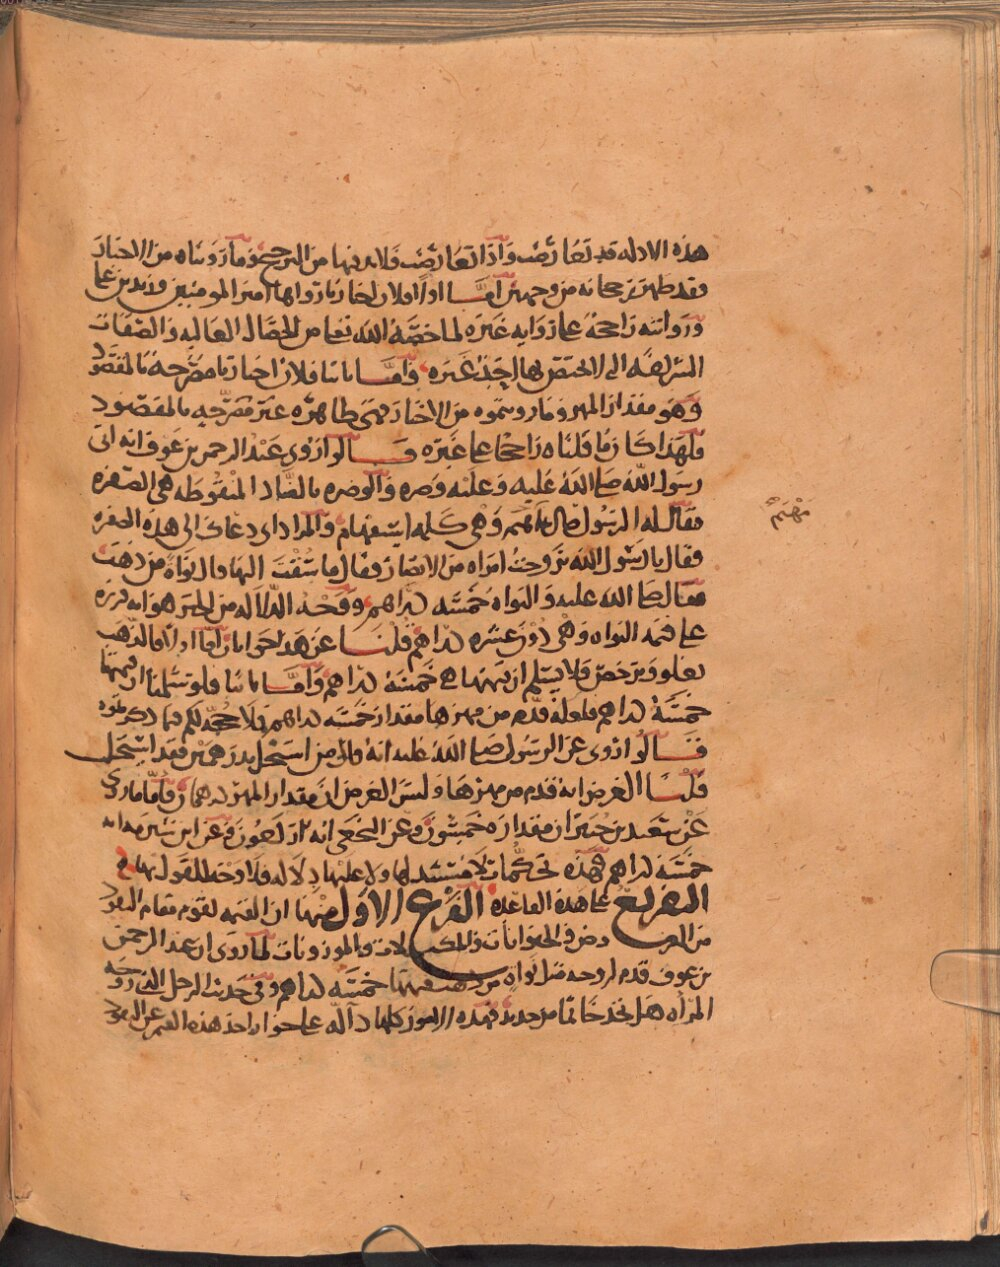 هذه الادله قد تعارضت واذا تعارضت فلا بد فيها من الترجيح وما رويناه من الاخبار
فقد ظهر رجحانه من وجهين اما اولا فلان اخبارنا رواها امير المومنين وزيد بن على
وروايته راجحة على رواية غيره لما خصه الله تعالى من الخصال العالية والصفات
الشريفة التى لا يختص بها احد غيره واما ثانيا فلان اخبارنا مصرحة بالمقصود
وهو مقدار المهر وما رويتموه من الاخبار فهى ظاهره غير مصرحه بالمقصود
فلهذا كان ما قلناه راجحا على غيره قالوا روى عبد الرحمن بن عوف انه اتى
رسول الله صلى الله عليه وعليه وضره والوضره بالضاد المنقوطه هى الصفره
فقال له الرسول صلى مهيم وهى كلمه استفهام والمراد اى دعاك الى هذه الصفره
فقال يا رسول الله تزوجت امراه من الانصار فقال ما سقت اليها قال نواة من ذهب
فقال صلى الله عليه والنواه خمسه دراهم ووجه الدلاله من الخبر هو انه قرره
على قيمه النواه وهى دون عشره دراهم قلنا عن هذا جوابان اما اولا فالذهب
يغلو ويرخص فلا يسلم ان قيمتها هى خمسة دراهم واما ثانيا فلو سلمنا ان قيمتها
خمسة دراهم فلعله قدم من مهرها مقدار خمسه دراهم فلا حجة لكم فيما ذكرتموه
قالوا روى عن الرسول صلى الله عليه انه قال من استحل بدرهمين فقد استحل
قلنا الغرض انه قدم من مهرها وليس الغرض ان مقدار المهر درهمان فاما ما روى
عن سعيد بن جبير ان مقداره خمسون وعن النخعى انه اربعون وعن ابن شبرمه انه
خمسة دراهم فهذه تحكمات لا مستند لها ولا عليها دلاله فلا وجه للقول بها
التفريع على هذه القاعدة الفرع الاول منها ان القيمه تقوم مقام النقود
من العروض فى الحيوانات والمكيلات والموزونات لما روى ان عبد الرحمن
بن عوف قدم لزوجه مثل نواه من ذهب قيمتها خمسه دراهم وفى حديث الرجل الذى زوجه
المرأه هل تجد خاتما من حديد فهذه الامور كلها دآلة على جواز اخذ هذه القيم عن النقود
مَهْيَمْ